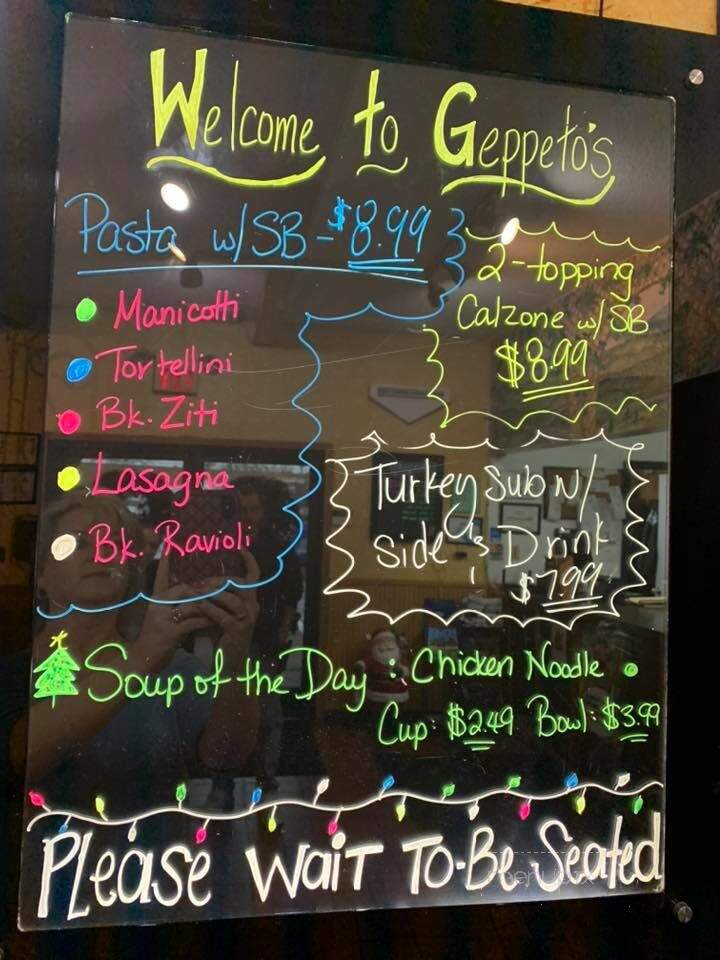 Welcome to Geppeto's
Pasta w/SB - $8.99
Manicotti
Tortellini
Bk. Ziti
Lasagna
Bk. Ravioli
2-topping
Calzone w/SB
$8.99
Turkey Sub w/
Side & Drink
$7.99
Soup of the Day : Chicken Noodle
Cup: $2.49 Bowl: $3.99
Please Wait To-Be Seated